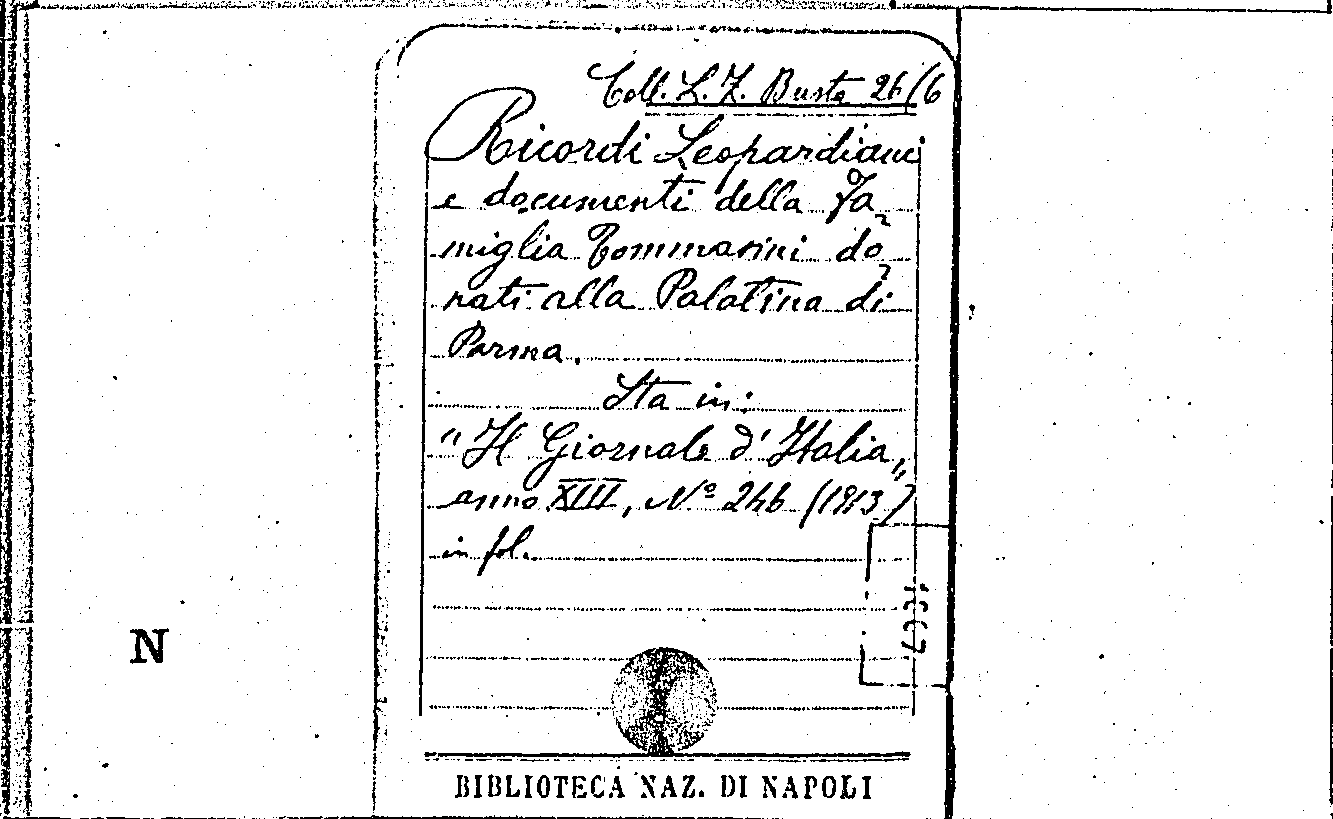 Coll. L. Z. Busta 26/6
Ricordi Leopardiani
e documenti della Fa-
miglia Tommasini do-
nati alla Palatina di
Parma.
Sta in:
"Il Giornale d'Italia„
anno XIII, Nº 246 (1913)
in fol.
N
BIBLIOTECA NAZ. DI NAPOLI